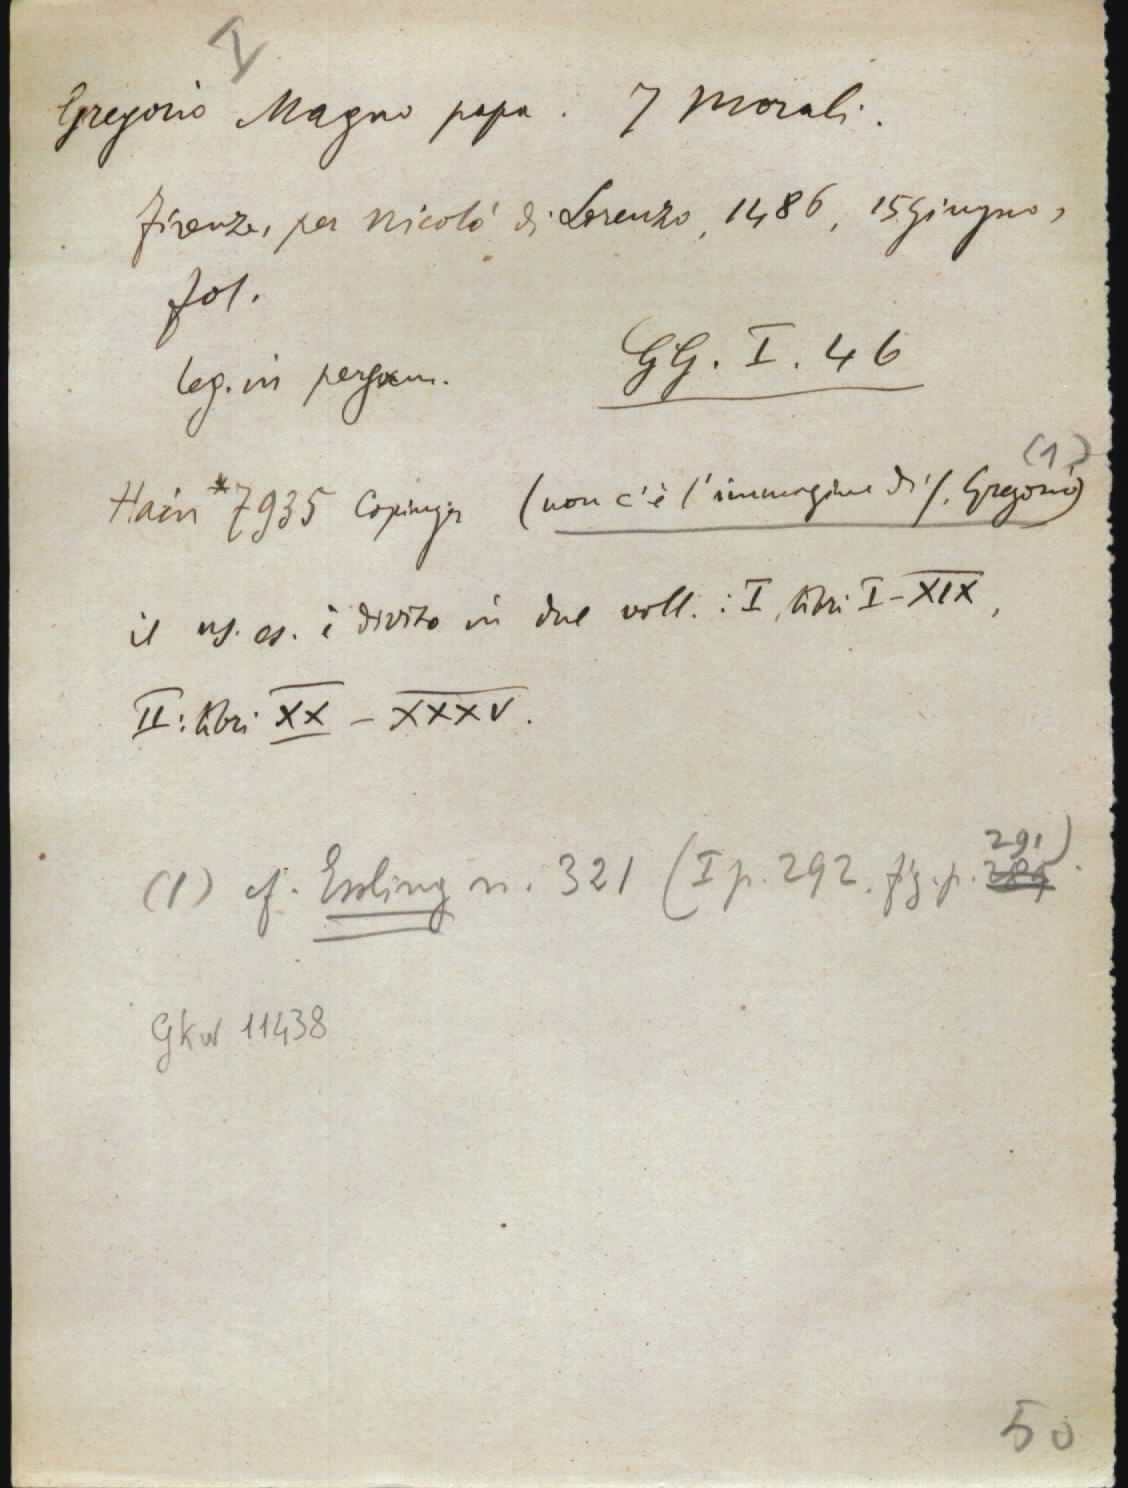 V
Gregorio Magno papa. I Morali.
Firenze, per Nicolò di Lorenzo, 1486, 15 giugno,
fol.
leg. in pergam.
GG. I. 46
(1)
Hain *7935 Copinger (non c'è l'immagine di s. Gregorio)
il ns. es. è diviso in due voll.: I, libri I-XIX,
II: libri XX - XXXV.
291)
(1) cf. Essling n. 321 (I p. 292. fig. p. 289.
GkW 11438
50